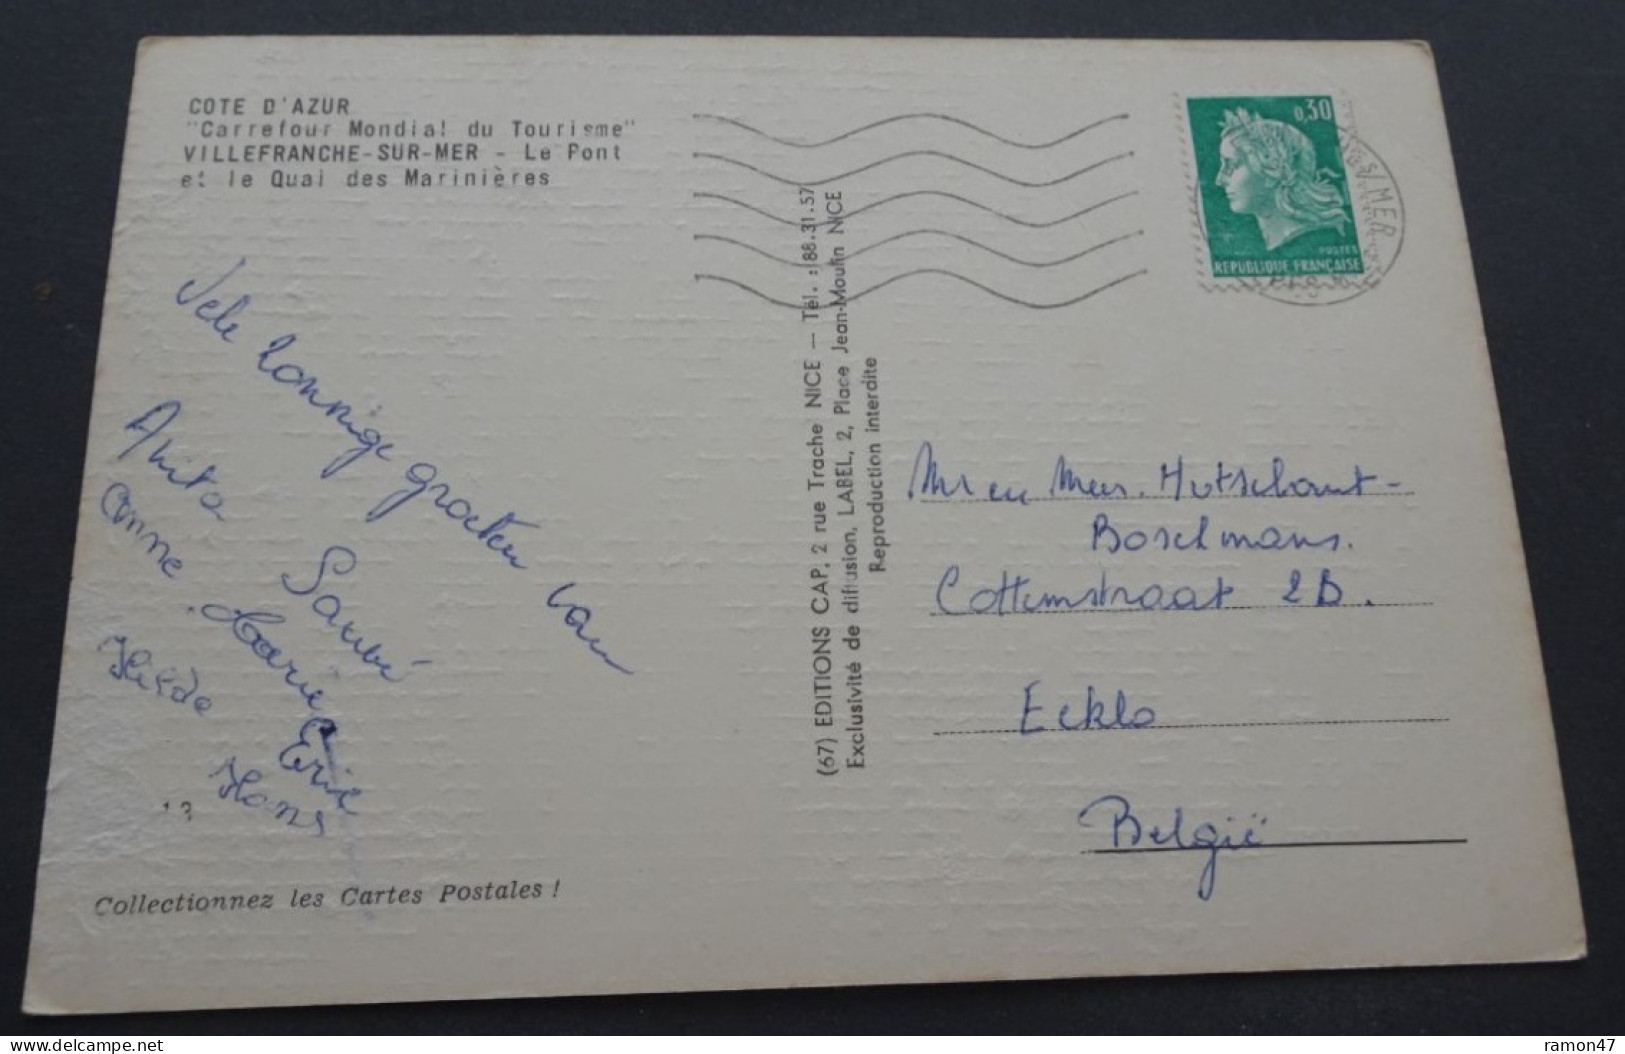 COTE D'AZUR
"Carrefour Mondial du Tourisme"
VILLEFRANCHE-SUR-MER - Le Pont
et le Quai des Marinières
Vele zonnige groeten van
Anita
Anne Marie
Hilde
Eric
Hans
13
Collectionnez les Cartes Postales !
(67) EDITIONS CAP, 2 rue Trache NICE — Tél. : 88.31.57
Exclusivité de diffusion, LABEL, 2, Place Jean-Moulin NICE
Reproduction interdite
0,30
POSTES
REPUBLIQUE FRANÇAISE
S/MER
Mr en Mevr. Hutsebaut-
Boschmans.
Cottemstraat 2B.
Eeklo
België
Delcampe.net
ramon47